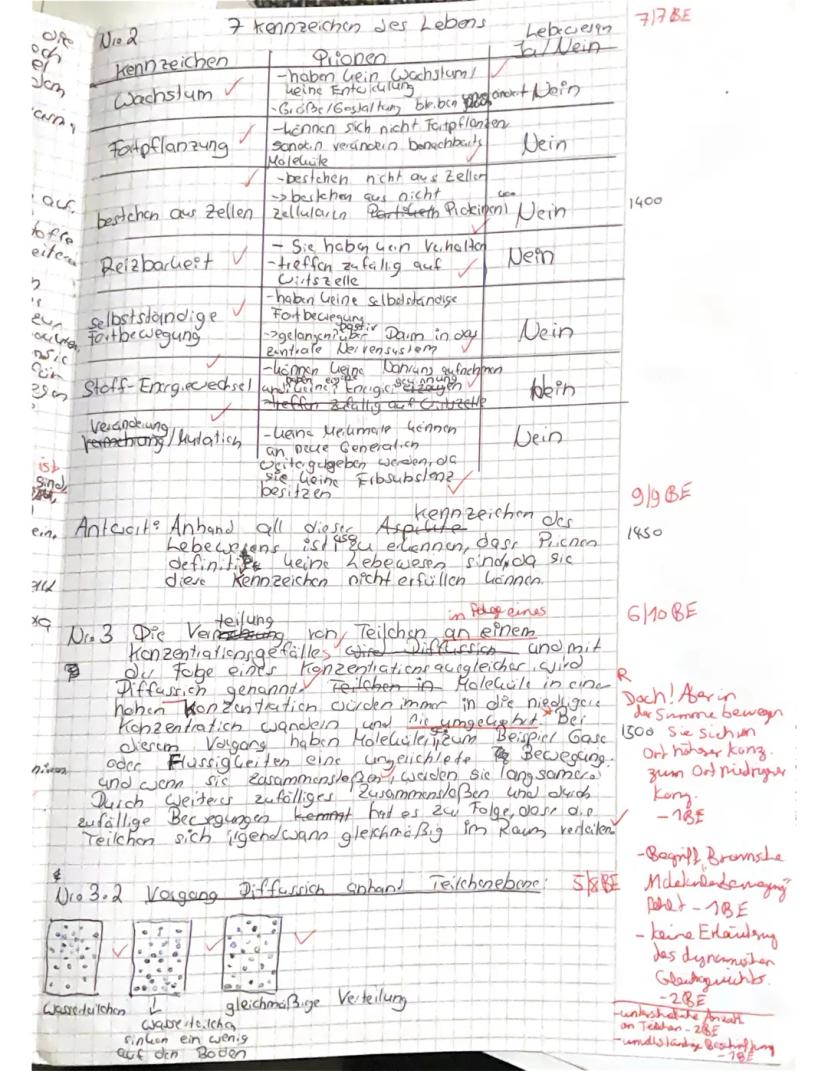 7/7 BE
Nr. 2 7 Kennzeichen des Lebens
Kennzeichen
Prionen
Lebewesen
Ja/Nein
Wachstum
-haben kein Wachstum/
keine Entwicklung
-Größe/Gestaltung bleiben
Nein
Fortpflanzung
-können sich nicht Fortpflanzen
sondern verändern benachbarte
Moleküle
Nein
bestehen aus Zellen
-bestehen nicht aus Zellen
-> bestehen aus nicht
zellulären Partikeln Proteinen
Nein
1400
Reizbarkeit
- Sie haben kein Verhalten
-treffen zufällig auf
Wirtszelle
Nein
selbstständige
Fortbewegung
-haben keine selbstständige
Fortbewegung
passiv
->gelangen über Darm in das
zentrale Nervensystem
Nein
Stoff-Energiewechsel
-können keine Nahrung aufnehmen
treffen zufällig auf Wirtszelle
Nein
Veränderung
Vermehrung/Mutation
-keine Merkmale können
an neue Generation
weitergegeben werden, da
sie keine Erbsubstanz
besitzen
Nein
9/9 BE
Kennzeichen
Antwort: Anhand all dieser Aspekte des
Lebewesens ist zu erkennen, dass Prionen
definitiv keine Lebewesen sind, da sie
diese Kennzeichen nicht erfüllen können.
1450
6/10 BE
teilung
in Folge eines
Nr. 3 Die Vermischung von Teilchen an einem
Konzentrationsgefälle wird Diffusion und mit
der Folge eines Konzentrationsausgleiches, wird
Diffusion genannt. Teilchen in Moleküle in einer
hohen Konzentration würden immer in die niedrigere
Konzentration wandeln und nie umgekehrt. Bei
diesem Vorgang haben Moleküle, zum Beispiel Gase
oder Flüssigkeiten eine ungerichtete Bewegung
und wenn sie zusammenstoßen, werden sie langsamer.
Durch weiteres zufälliges Zusammenstoßen und durch
zufällige Bewegungen kommt hat es zur Folge, dass die
Teilchen sich irgendwann gleichmäßig im Raum verteilen
R
Doch! Aber in
der Summe bewegen
1500 sie sich von
Ort höherer Konz.
zum Ort niedriger
Konz.
-1BE
-Begriff Brownsche
Molekularbewegung
fehlt -1BE
- keine Erläuterung
des dynamischen
Gleichgewichts.
-2BE
Nr. 3.2 Vorgang Diffusion anhand Teilchenebene:
5/8 BE
Wasserteilchen
Wasserteilchen
sinken ein wenig
auf den Boden
gleichmäßige Verteilung
-unterschiedliche Anzahl
an Teilchen -2BE
-unvollständige Beschriftung
-1BE